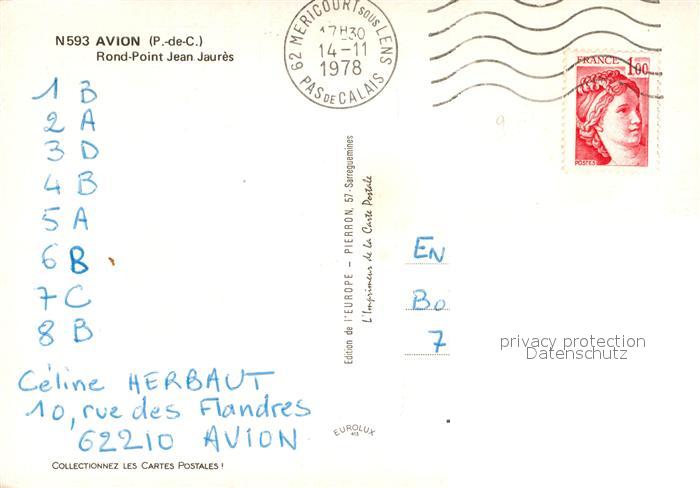 N593 AVION (P.-de-C.)
Rond-Point Jean Jaurès
62 MERICOURT SOUS LENS
17H30
14-11
1978
PAS DE CALAIS
FRANCE 1,00
POSTES
1 B
2 A
3 D
4 B
5 A
6 B
7 C
8 B
Céline HERBAUT
10, rue des Flandres
62210 AVION
COLLECTIONNEZ LES CARTES POSTALES !
Edition de l'EUROPE - PIERRON, 57-Sarreguemines
L'Imprimeur de la Carte Postale
EUROLUX
EN
Bo
7
privacy protection
Datenschutz